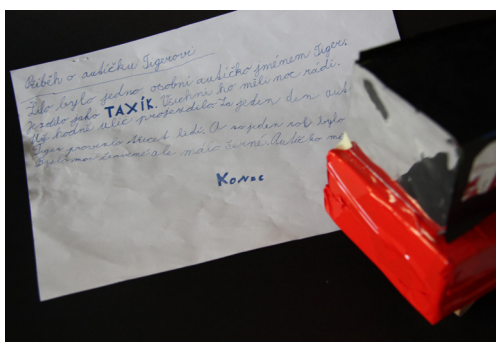 Příběh o autíčku Tigerovi
Žilo bylo jedno osobní autíčko jménem Tiger.
Jezdilo jako TAXÍK. Všichni ho měli moc rádi.
hodně ulic projezdilo za jeden den aut
Tiger provezlo třicet lidí. A za jeden rok bylo
ale málo černé. Autíčko m
KONEC